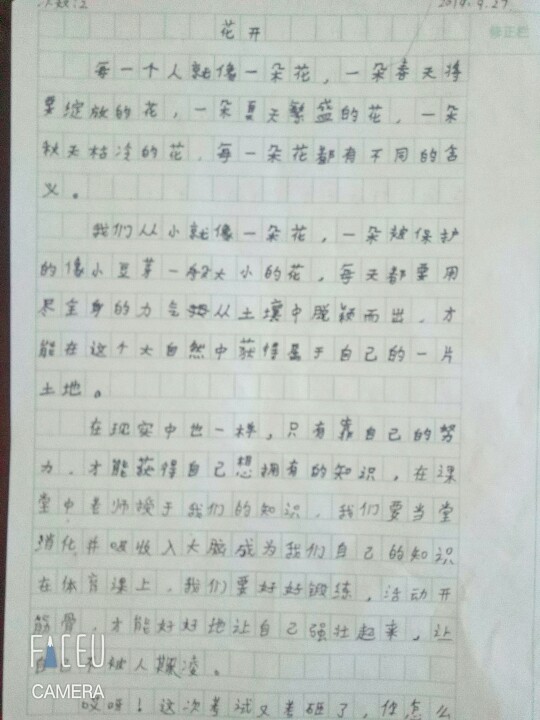 次数:2
2019.9.27
修正栏
花开
每一个人就像一朵花，一朵春天将
要绽放的花，一朵夏天繁盛的花，一朵
秋天枯冷的花，每一朵花都有不同的含
义。
我们从小就像一朵花，一朵被保护
的像小豆芽一般大小的花，每天都要用
尽全身的力气从土壤中脱颖而出，才
能在这个大自然中获得属于自己的一片
土地。
在现实中也一样，只有靠自己的努
力，才能获得自己想拥有的知识，在课
堂中老师授于我们的知识，我们要当堂
消化并吸收入大脑成为我们自己的知识
在体育课上，我们要好好锻练，活动开
筋骨，才能好好地让自己强壮起来，让
自己不被人欺凌。
哎呀！这次考试又考砸了，你怎么
FACEU
CAMERA